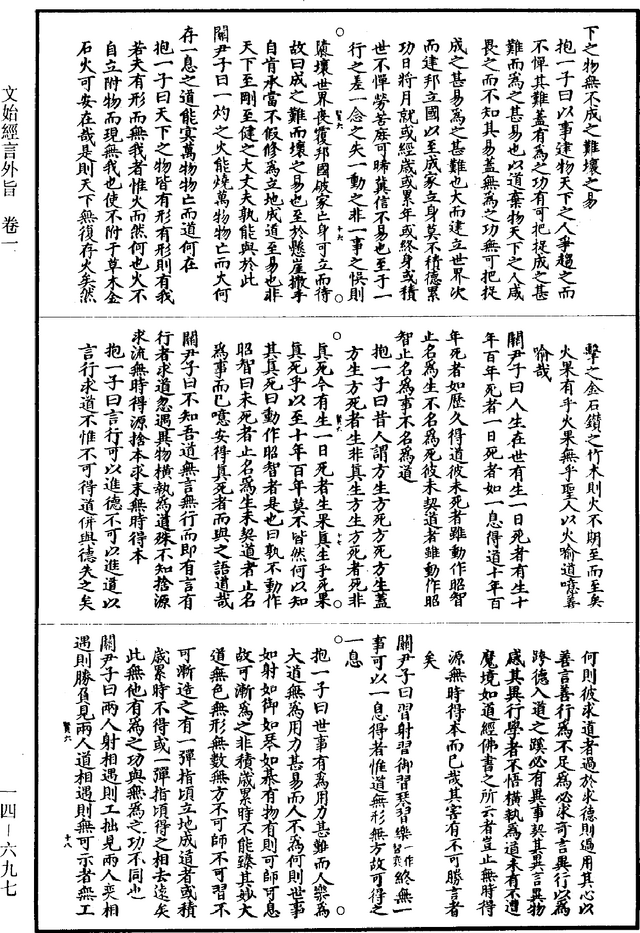 下之物無不成之難壞之易
抱一子曰以事建物天下之人爭趨之而
不憚其難蓋有為之功有可把捉成之甚
難而為之甚易也以道棄物天下之人咸
畏之而不知其易蓋無為之功無可把捉
成之甚易為之甚難也大而建立世界次
而建邦立國以至成家立身莫不積德累
功日將月就或經歲或累年或終身或積
世不憚勞苦庶可晞冀信不易也至于一
行之差一念之失一動之非一事之悞則
隳壞世界喪覆邦國破家亡身可立而待
故曰成之難而壞之易也至於懸崖撒手
自肯承當不假修為立地成道至易也非
天下至剛至健之大丈夫孰能與於此
關尹子曰一灼之火能燒萬物物亡而火何
存一息之道能冥萬物物亡而道何在
抱一子曰天下之物皆有形有形則有我
若夫有形而無我者惟火而然何也火不
自立附物而現無我也使不附于草木金
石火可安在哉是則天下無復存火矣然
擊之金石鑽之竹木則火不期至而至矣
火果有乎火果無乎聖人以火喻道噫善
喻哉
關尹子曰人生在世有生一日死者有生十
年百年死者一日死者如一息得道十年百
年死者如歷久得道彼未死者雖動作昭智
止名為生不名為死彼未契道者雖動作昭
智止名為事不名為道
抱一子曰昔人謂方生方死方死方生蓋
方生方死者生非真生方生方死者死非
真死今有生一日死者生果真生乎死果
真死乎以至十年百年莫不皆然何以知
其真死曰動作昭智者是也曰孰不動作
昭智曰未死者止名為生未契道者止名
為事而已噫安得真死者而與之語道哉
關尹子曰不知吾道無言無行而即有言有
行者求道忽遇異物橫執為道殊不知捨源
求流無時得源捨本求末無時得本
抱一子曰言行可以進德不可以進道以
言行求道不惟不可得道併與德失之矣
何則彼求道者過於求德則過用其心以
善言善行為不足為必求奇言異行以為
跨德入道之蹊必有異事契其異言異物
感其異行學者不悟橫執為道未有不遭
魔境如道經佛書之所云者豈止無時得
源無時得本而已哉其害有不可勝言者
矣
關尹子曰習射習御習琴習樂終無一
事可以一息得者惟道無形無方故可得之
一息
抱一子曰世事有為用力甚難而人樂為
大道無為用力甚易而人不為何則世事
如射如御如琴如棊有物有則可師可息
故可漸為之非積歲累時不能臻其妙大
道無色無形無數無方不可師不可習不
可漸造之有一彈指頃立地成道者或積
歲累時不得或一彈指頃得之相去遠矣
此無他有為之功與無為之功不同也
關尹子曰兩人射相遇則工拙見兩人奕相
遇則勝負見兩人道相遇則無可示者無工
文始經言外旨 卷一
一四－六九七